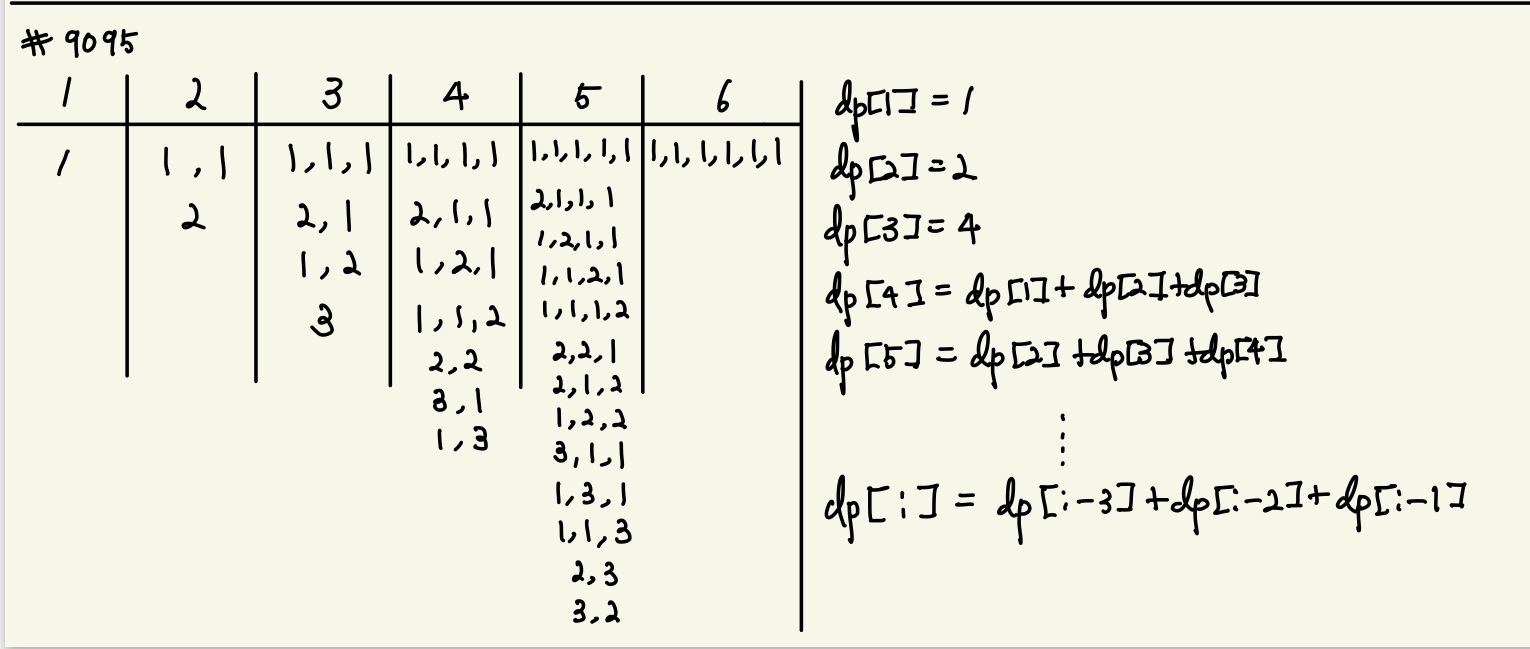 # 9095
1 2 3 4 5 6
1 1,1 1,1,1 1,1,1,1 1,1,1,1,1 1,1,1,1,1,1
2 2,1 2,1,1 2,1,1,1
1,2 1,2,1 1,2,1,1
3 1,1,2 1,1,2,1
2,2 1,1,1,2
3,1 2,2,1
1,3 2,1,2
1,2,2
3,1,1
1,3,1
1,1,3
2,3
3,2
dp[1] = 1
dp[2] = 2
dp[3] = 4
dp[4] = dp[1] + dp[2] + dp[3]
dp[5] = dp[2] + dp[3] + dp[4]
dp[i] = dp[i-3] + dp[i-2] + dp[i-1]